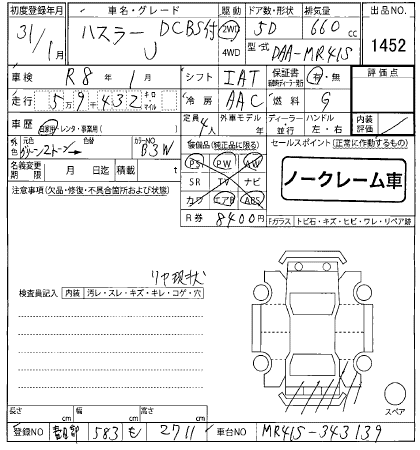 初度登録年月 車名・グレード 駆動 ドア数・形状 排気量 出品NO.
31/1月 ハスラー DCBS付 2WD 5D 660 cc 1452
U 4WD 型・式 DAA-MR41S
車検 R8年1月 シフト IAT 保証書 有・無 評価点
走行 59432 キロ・マイル 冷房 AAC 燃料 G
車歴 自家用・レンタ・事業用( ) 定員 4人 外車モデル 年 ディーラー 並行 ハンドル 左・右 内装評価
外色 元色 グリーン2トーン 色替 カラーNO B3W 装備品(純正品に限る) セールスポイント(正常に作動するもの)
名義変更期限 月 日迄 積載 t PS PW AW
注意事項(欠品・修復・不具合箇所および状態) SR TV ナビ ノークレーム車
カワ エアB ABS
R券 8400円 Fガラス トビ石・キズ・ヒビ・ワレ・リペア跡
リヤ現状
検査員記入 内装 汚レ・スレ・キズ・キレ・コゲ・穴
長さ cm 幅 cm 高さ cm スペア
登録NO 583 も 2711 車台NO MR41S-343139